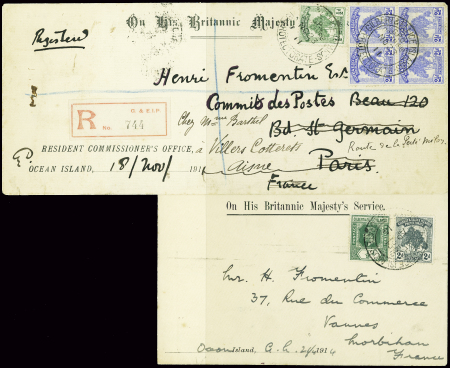 On His Britannic Majesty's
Registered
Henri Fromentin Esq.
Commis des Postes Beau 120
R G. & E.I.P.
No. 744
Chez Mme Barthel
Bd. St Germain
RESIDENT COMMISSIONER'S OFFICE, à Villers Cotterets
Route de la
OCEAN ISLAND, 18/Nov/ 191
Aisne
Paris
France
On His Britannic Majesty's Service.
Mr. H. Fromentin
37, Rue du Commerce
Vannes
Morbihan
Island, 1914
France